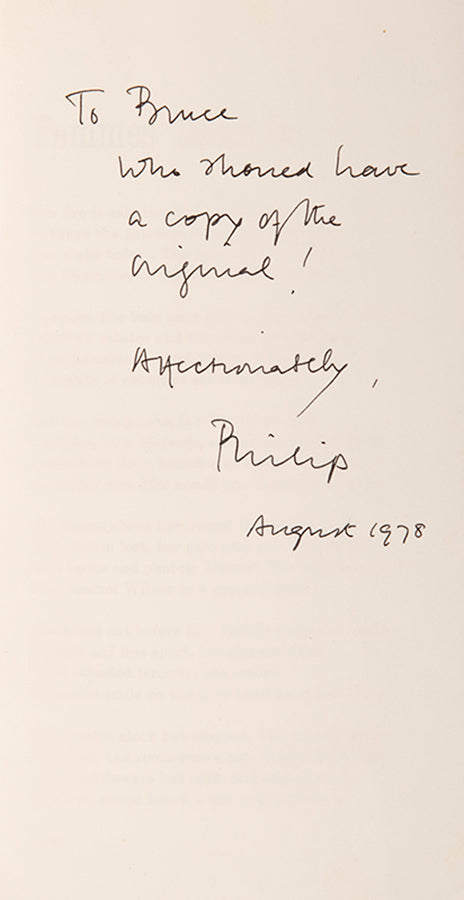 To Bruce
who should have
a copy of the
original!
Affectionately,
Philip
August 1978